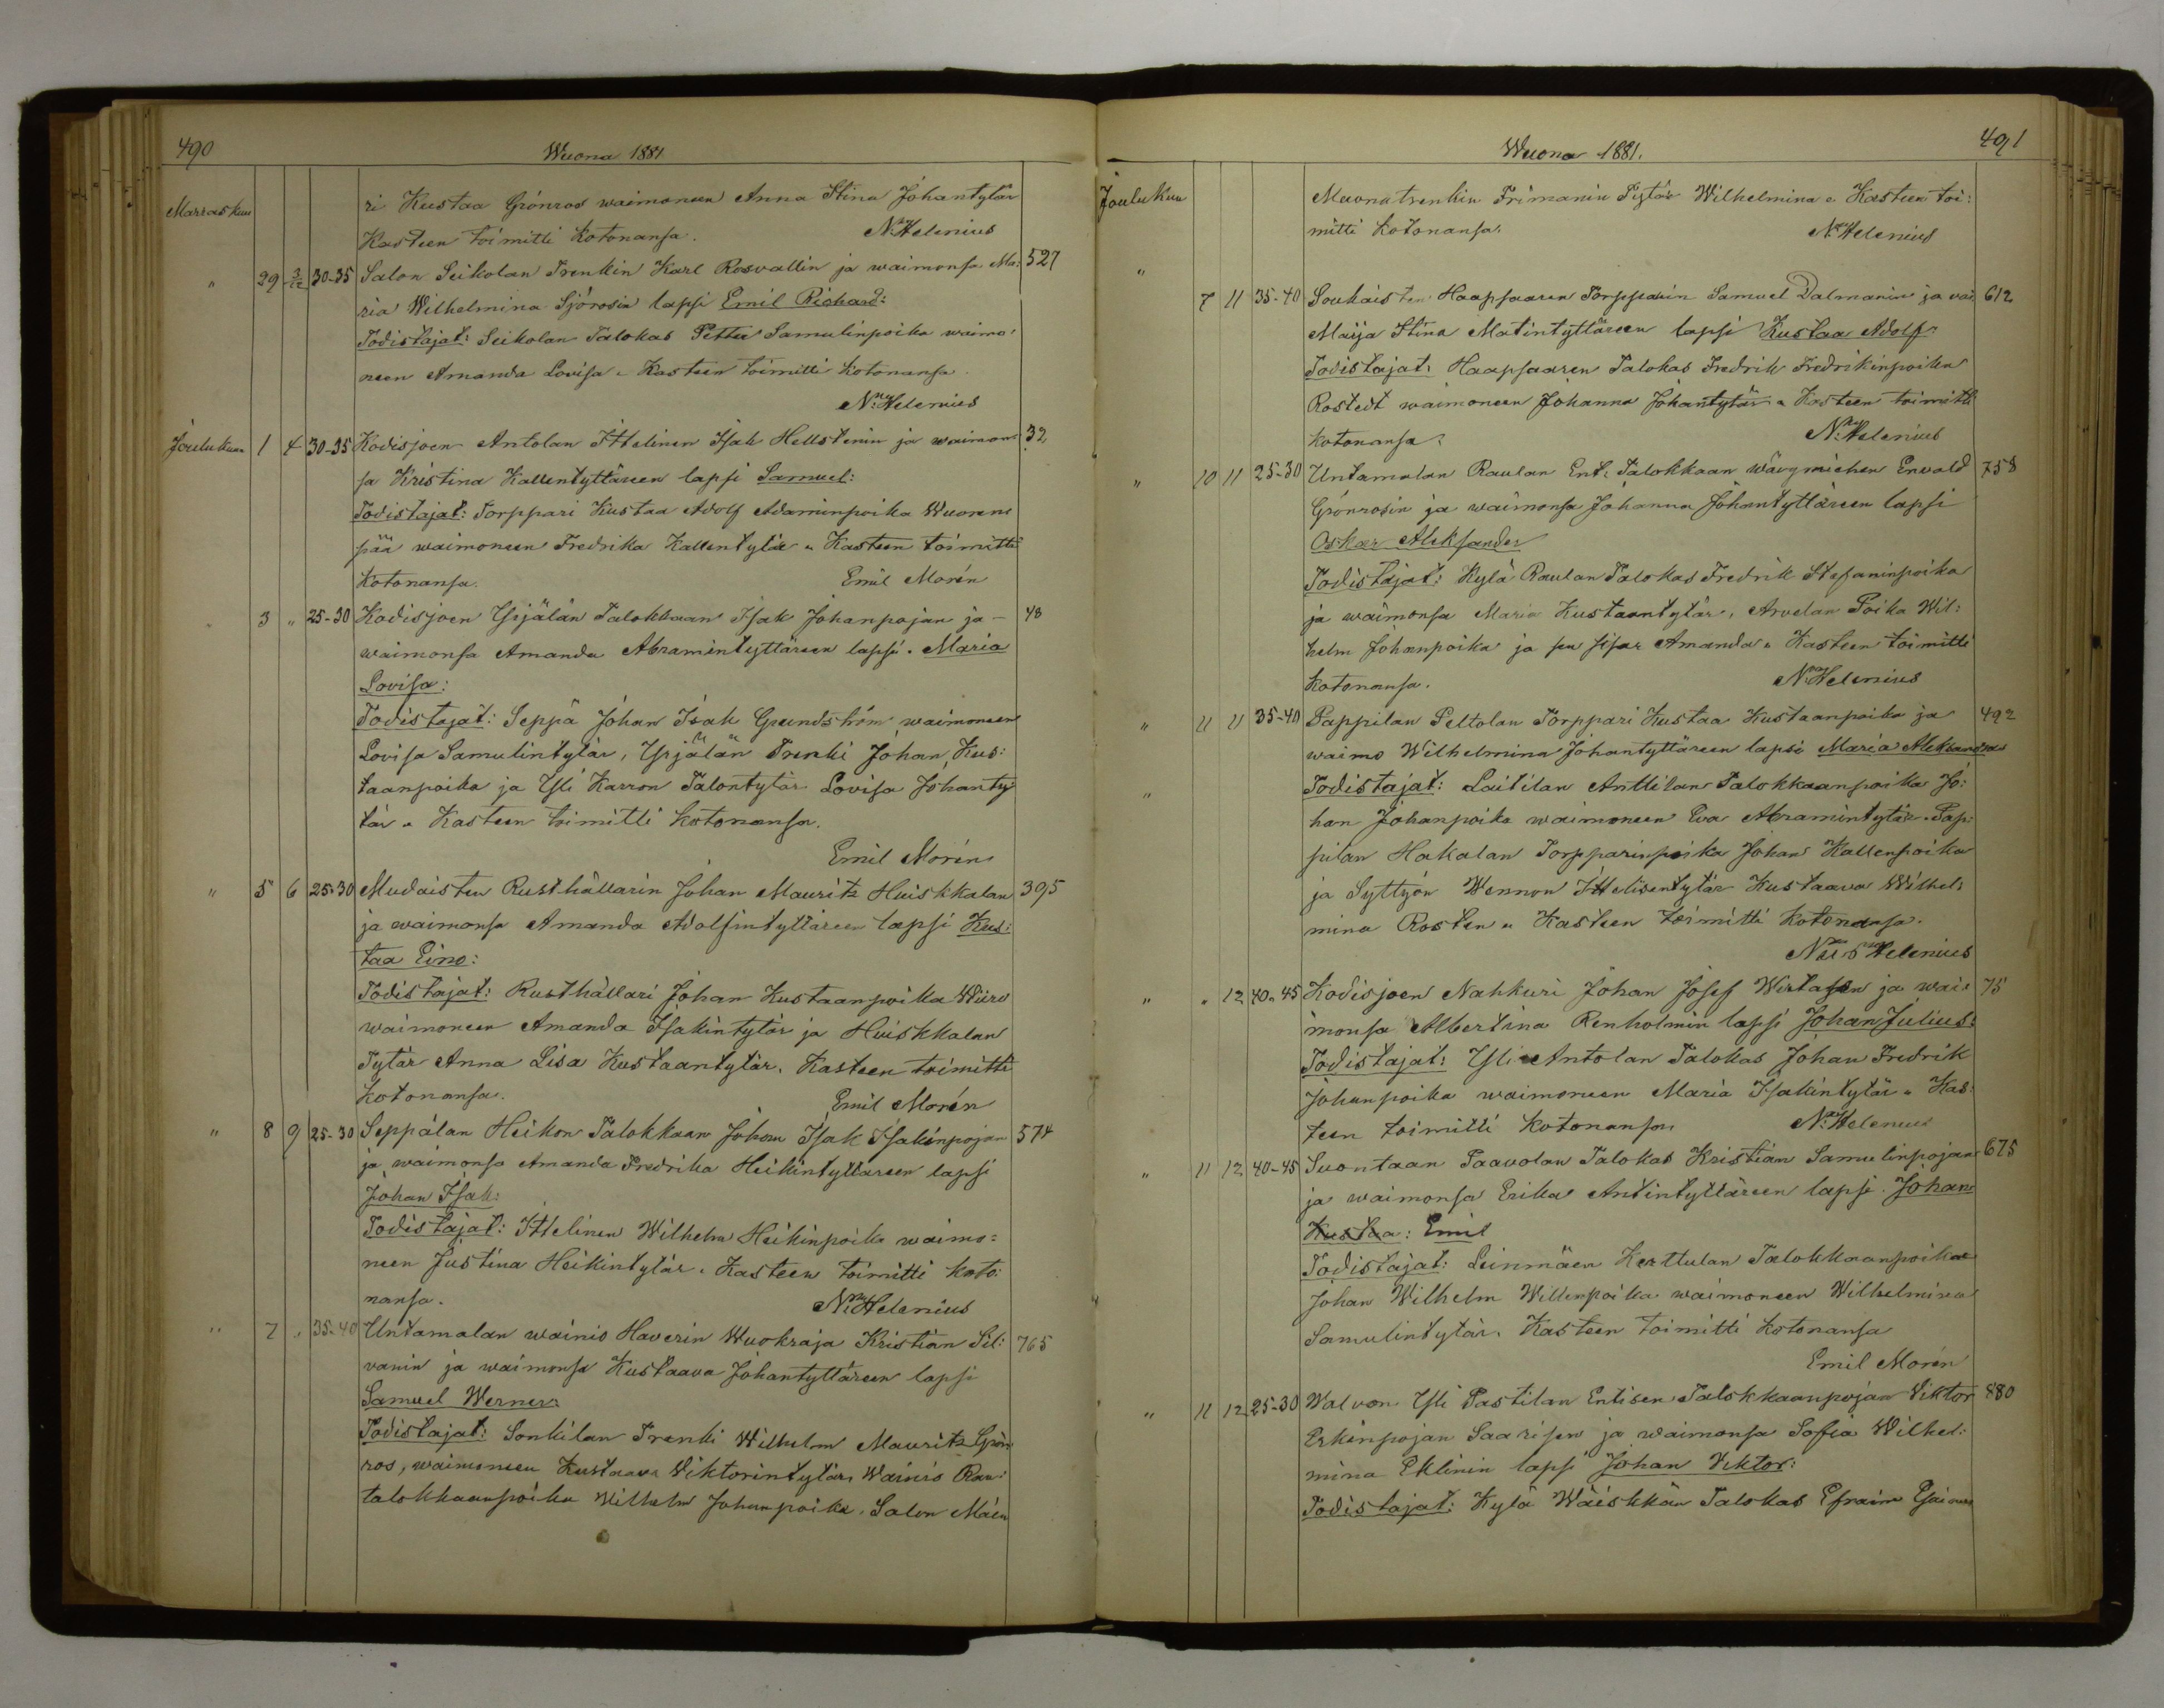 490
Wuona 1881
Marraskuu
ri Kustaa Grönroos waimoneen Anna Stina Johantytär
Kasteen toimitti kotonansa. N. Helenius
" 29 3/12 30-35 Salon Seikolan Trenkin Karl Rosvallin ja waimonsa Ma: 527
ria Wilhelmina Sjörosin lapsi Emil Richard:
Todistajat: Seikolan Talokas Petter Samulinpoika waimo:
neen Amanda Lovisa " Kasteen toimitti kotonansa.
N. Helenius
Joulukuu 1 4 30-35 Kodisjoen Antolan Ittelinen Isak Hellstenin ja waimon: 32
sa Kristina Kallentyttäreen lapsi Samuel:
Todistajat: Torppari Kustaa Adolf Adaminpoika Wuoren:
pää waimoneen Fredrika Kallentytär " Kasteen toimitti
kotonansa. Emil Morén
3 " 25-30 Kodisjoen Yrjälän Talokkaan Isak Johanpojan ja 48
waimonsa Amanda Abramintyttäreen lapsi. Maria
Lovisa:
Todistajat: Seppä Johan Isak Grundström waimoneen
Lovisa Samulintytär, Yrjälän Trenki Johan Kus:
taanpoika ja Yli Karron Talontytär Lovisa Johanty
tär " Kasteen toimitti kotonansa.
Emil Morén
" 5 6 25-30 Mudaisten Rusthällarin Johan Mauritz Huiskkalan 395
ja waimonsa Amanda Adolfintyttäreen lapsi Kus:
taa Eino:
Todistajat: Rusthällari Johan Kustaanpoika Wiiro
waimoneen Amanda Isakintytär ja Huiskkalan
Tytär Anna Lisa Kustaantytär. Kasteen toimitti
kotonansa. Emil Morén
" 8 9 25-30 Seppälän Heikon Talokkaan Johan Isak Isakinpojan 574
ja waimonsa Amanda Fredrika Heikintyttäreen lapsi
Johan Isak:
Todistajat: Ittelinen Wilhelm Heikinpoika waimo:
neen Justina Heikintytär. Kasteen toimitti koto:
nansa. N. Helenius
" 7 " 35-40 Untamalan wainio Haverin Wuokraja Kristian Sil: 765
vanin ja waimonsa Kustaava Johantyttäreen lapsi
Samuel Werner:
Todistajat: Sonkilan Trenki Wilhelm Mauritz Grön
ros, waimoneen Kustaava Wiktorintytär, Wainio Rau:
talokkaanpoika Wilhelm Johanpoika. Salon Mäen
Wuona 1881.
491
Joulukuu
Muonatrenkin Frimanin Tytär Wilhelmina " Kasteen toi:
mitti kotonansa. N. Helenius
" 7 11 35-40 Soukaisten Haapsaaren Torpparin Samuel Dalmanin ja vai 612
Maija Stina Matintyttäreen lapsi Kustaa Adolf:
Todistajat: Haapsaaren Talokas Fredrik Fredrikinpoika
Rostedt waimoneen Johanna Johantytär " Kasteen toimitti
kotonansa. N. Helenius
" 10 11 25-30 Untamalan Raulan Ent. Talokkaan wävymiehen Enwald 758
Grönrosin ja waimonsa Johanna Johantyttäreen lapsi
Oskar Aleksander
Todistajat: Kylä Raulan Talokas Fredrik Stefaninpoika
ja waimonsa Maria Kustaantytär, Arvelan Poika Wil:
helm Johanpoika ja sen sisar Amanda " Kasteen toimitti
kotonansa. N. Helenius
" 11 11 35-40 Pappilan Peltolan Torppari Kustaa Kustaanpoika ja 492
waimo Wilhelmina Johantyttäreen lapsi Maria Aleksandra
" Todistajat: Laitilan Anttilan Talokkaanpoika Jo:
han Johanpoika waimoneen Eva Abramintytär. Pap:
pilan Hakalan Torpparinpoika Johan Kallenpoika
ja Syttyön Wennon Ittelisentytär Kustaava Wilhel:
mina Rosten " Kasteen toimitti kotonansa.
Nils Helenius
" " 12 40-45 Kodisjoen Nahkuri Johan Josef Wirtasen ja wai: 75
monsa Albertina Renholmin lapsi Johan Julius:
Todistajat: Yli Antolan Talokas Johan Fredrik
Johanpoika waimoneen Maria Isakintytär " Kas:
teen toimitti kotonansa. N. Helenius
" 11 12 40-45 Suontaan Paavolan Talokas Kristian Samulinpojan 675
ja waimonsa Erika Antintyttäreen lapsi. Johan
Kustaa: Emil
Todistajat: Leinmäen Kerttulan Talokkaanpoika
Johan Wilhelm Willenpoika waimoneen Wilhelmina
Samulintytär. Kasteen toimitti kotonansa
Emil Morén
" 11 12 25-30 Walvon Yli Pastilan Entisen Talokkaanpojan Viktor 880
Erkinpojan Saarisen ja waimonsa Sofia Wilhel:
mina Eklinin lapsi Johan Viktor:
Todistajat: Kylä Wäiskkän Talokas Efraim